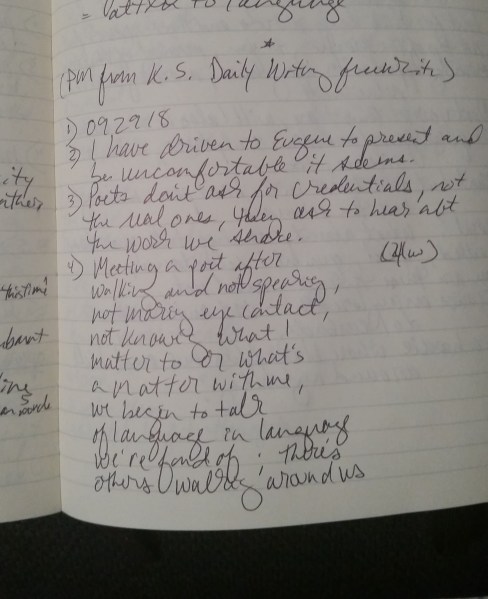 = lattice to language
*
(PM from K. S. Daily Writing freewrite)
1) 092918
2) I have driven to Eugene to present and
be uncomfortable it seems.
3) Poets don't ask for credentials, not
the real ones, they ask to hear abt
the work we share.
4) Meeting a poet after
walking and not speaking,
not making eye contact,
not knowing what I
matter to or what's
a matter with me,
we begin to talk
of language in language
we're fond of; there's
others walking around us